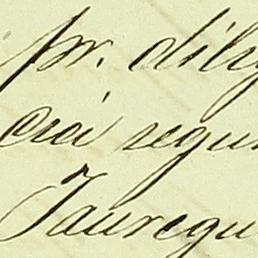 pr. dilig
erá segun
Jauregu